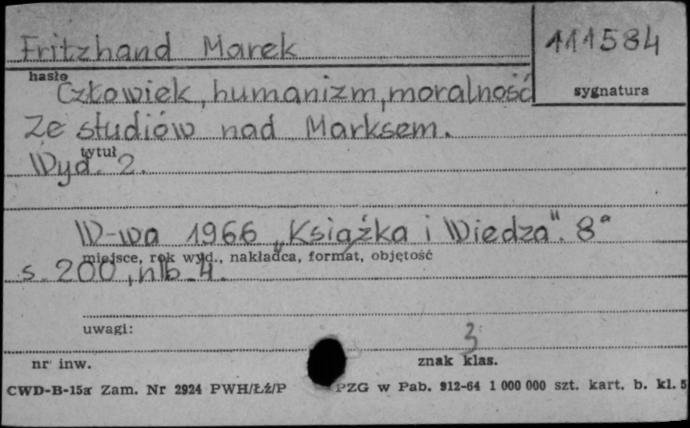 Fritzhand Marek
111584
hasło
sygnatura
Człowiek, humanizm, moralność
Ze studiów nad Marksem.
tytuł
Wyd. 2.
W-wa 1966 „Książka i Wiedza". 8°
miejsce, rok wyd., nakładca, format, objętość
s. 200, nlb. 4.
uwagi:
3
nr inw.
znak klas.
CWD-B-15a Zam. Nr 2924 PWH/Łź/P PZG w Pab. 912-64 1 000 000 szt. kart. b. kl. 5